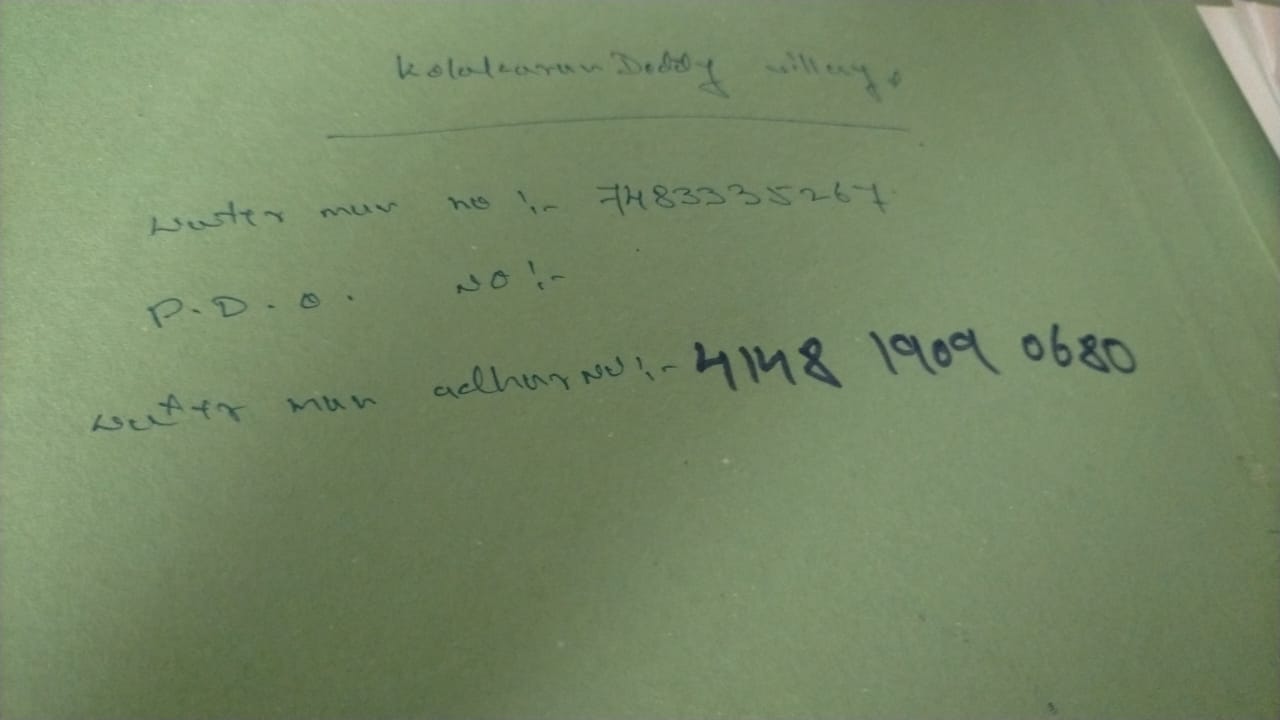 Kolakaran Doddy village
water man no :- 7483335267
P.D.O. NO :-
water man adhar NO :- 4148 1909 0680